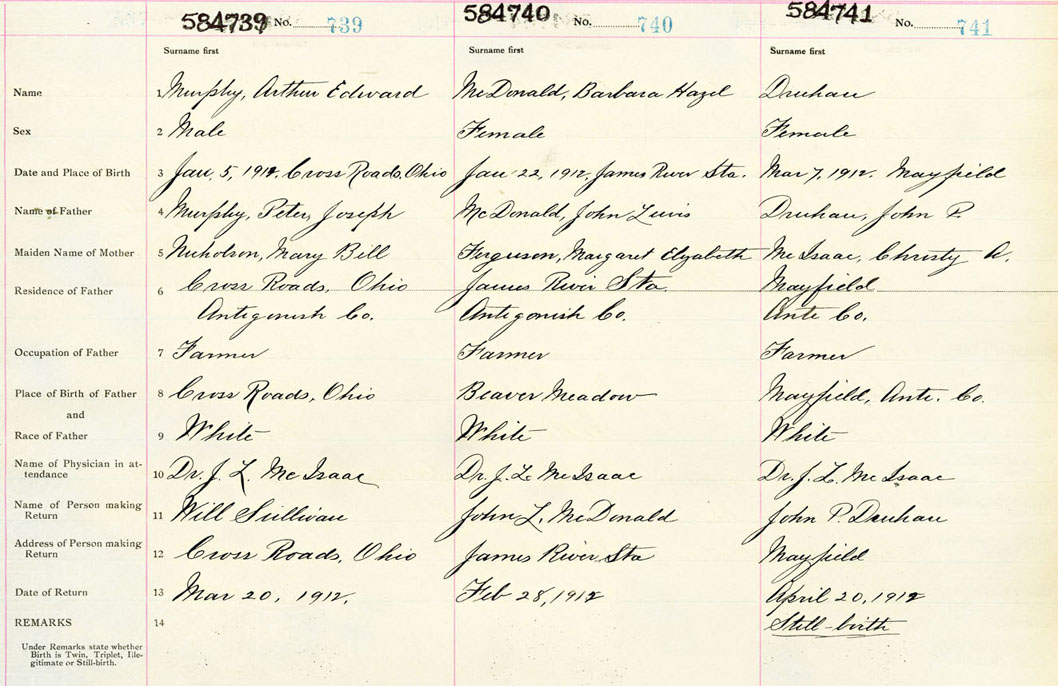 584739 No. 739 584740 No. 740 584741 No. 741
Surname first Surname first Surname first
Name 1 Murphy, Arthur Edward McDonald, Barbara Hazel Druhan
Sex 2 Male Female Female
Date and Place of Birth 3 Jan. 5, 1912. Cross Roads, Ohio Jan 22, 1912, James River Sta. Mar 7, 1912. Mayfield
Name of Father 4 Murphy, Peter, Joseph McDonald, John Lewis Druhan, John P.
Maiden Name of Mother 5 Nicholson, Mary Bell Ferguson, Margaret Elizabeth McIsaac, Christy A.
Residence of Father 6 Cross Roads, Ohio James River Sta. Mayfield
Antigonish Co. Antigonish Co. Ante Co.
Occupation of Father 7 Farmer Farmer Farmer
Place of Birth of Father 8 Cross Roads, Ohio Beaver Meadow Mayfield, Ante. Co.
and
Race of Father 9 White White White
Name of Physician in at-
tendance 10 Dr. J. L. McIsaac Dr. J. L. McIsaac Dr. J. L. McIsaac
Name of Person making
Return 11 Will Sullivan John L. McDonald John P. Druhan
Address of Person making
Return 12 Cross Roads, Ohio James River Sta Mayfield
Date of Return 13 Mar 20, 1912. Feb 28, 1912 April 20, 1912
REMARKS 14 Still-birth
Under Remarks state whether
Birth is Twin, Triplet, Ille-
gitimate or Still-birth.